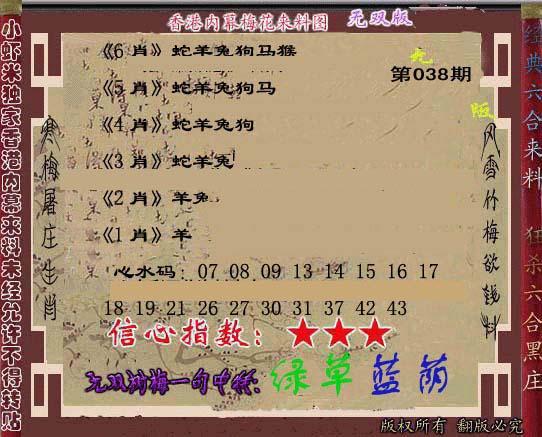 香港内幕梅花来料图 无双版
小虾米独家香港内幕来料未经允许不得转贴
经典六合来料 狂杀六合黑庄
无
第038期
版
寒梅屠庄生肖
风雪竹梅欲钱料
《6 肖》蛇羊兔狗马猴
《5 肖》蛇羊兔狗马
《4 肖》蛇羊兔狗
《3 肖》蛇羊兔
《2 肖》羊兔
《1 肖》羊
心水码：07 08 09 13 14 15 16 17
18 19 21 26 27 30 31 37 42 43
信心指数：★★★
无双狗梅一句中特：绿草蓝荫
版权所有 翻版必究